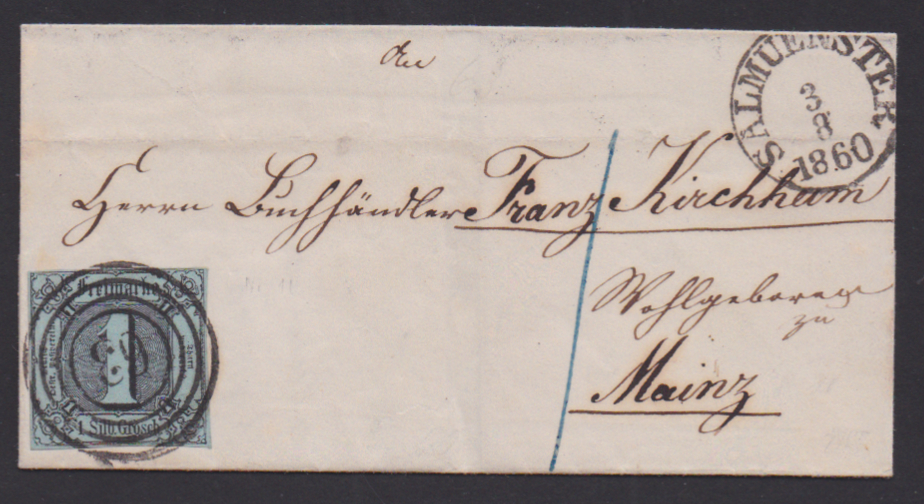 An
SALMUENSTER
3
8
1860
Herrn Buchhändler Franz Kirchheim
Wohlgeboren
zu
Mainz
Freimarke
1
1 Silb. Grosch.